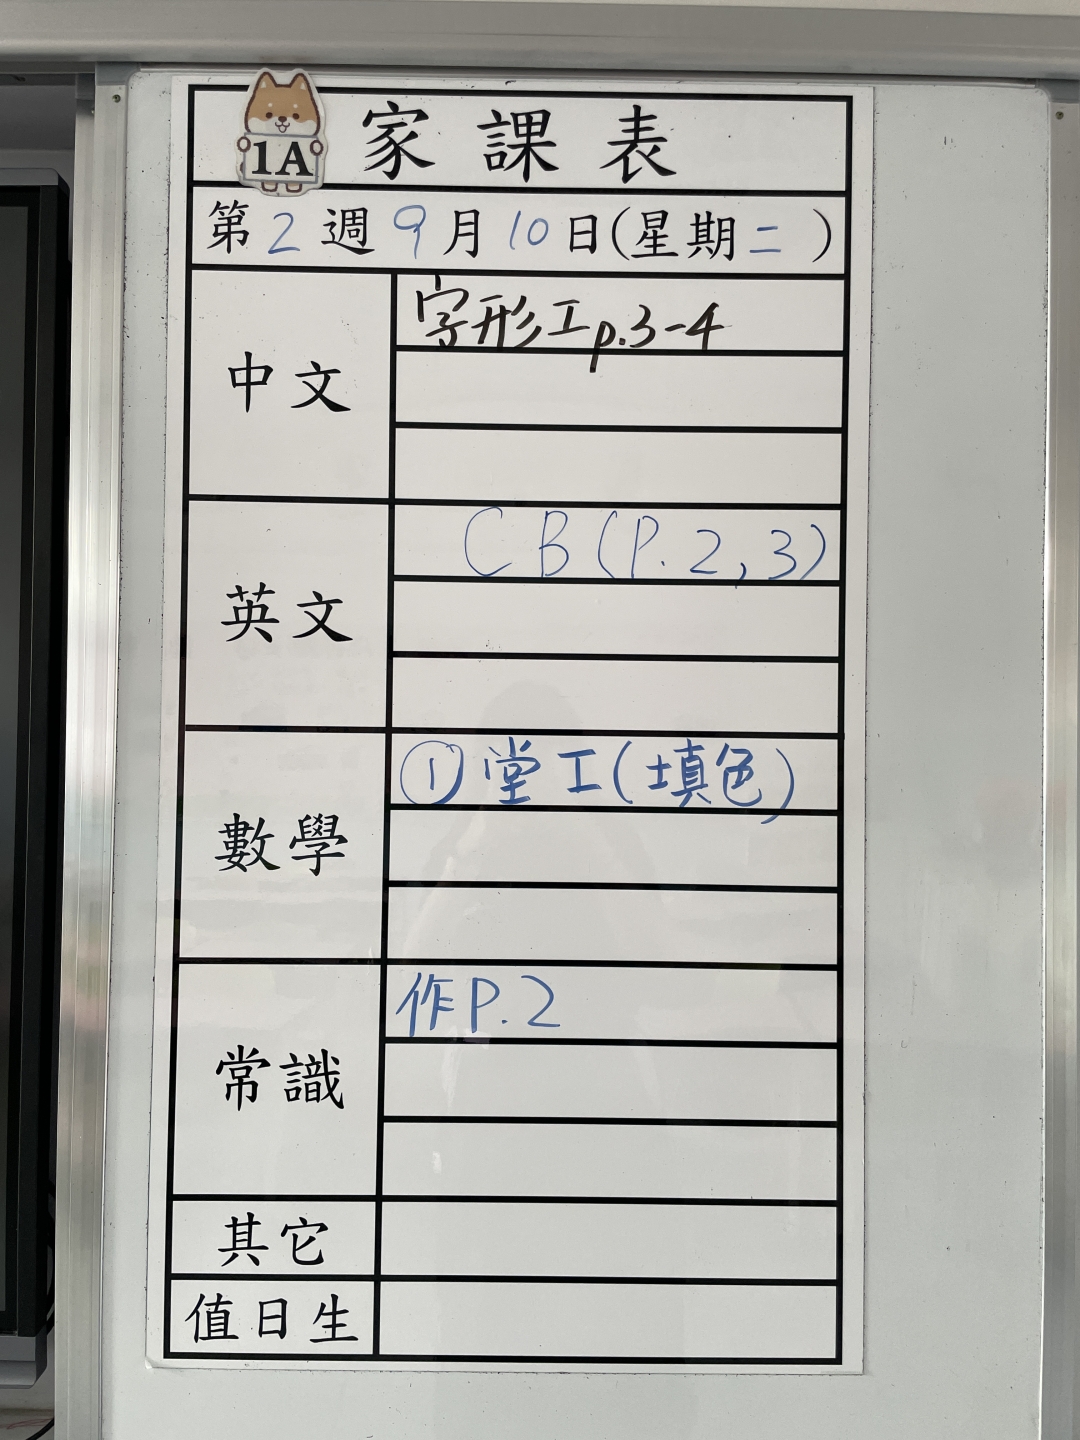 1A 家課表
第2週9月10日(星期二)
中文
字形工p.3-4
英文
CB(P.2,3)
數學
①堂工(填色)
常識
作P.2
其它
值日生